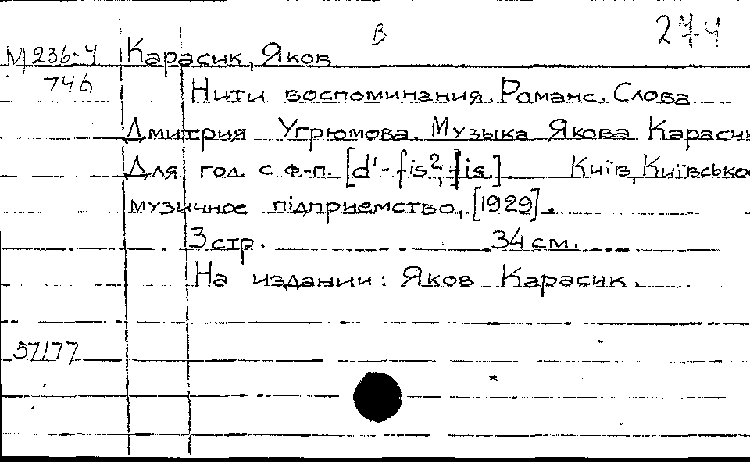 В 244
М 236-4 Карасик, Яков
746 Нити воспоминания. Романс. Слова
Дмитрия Угрюмова. Музыка Якова Карасик
Для гол. с ф-п. [d'-fis², fis] Київ, Київсько
музичное підприемство, [1929].
3 стр. 34 см.
На издании: Яков Карасик.
57177